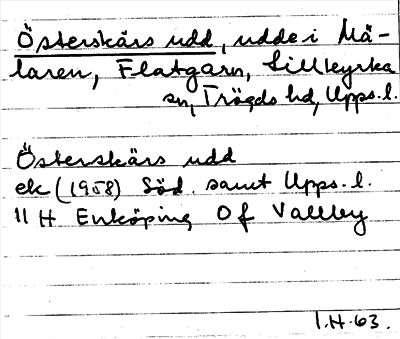 Österskärs udd, udde i Mä-
laren, Flatgarn, Lillkyrka
sn, Trögds hd, Upps. l.
Österskärs udd
ek (1958) Söd. samt Upps. l.
11 H Enköping 0 f Vallby
I.H.63.